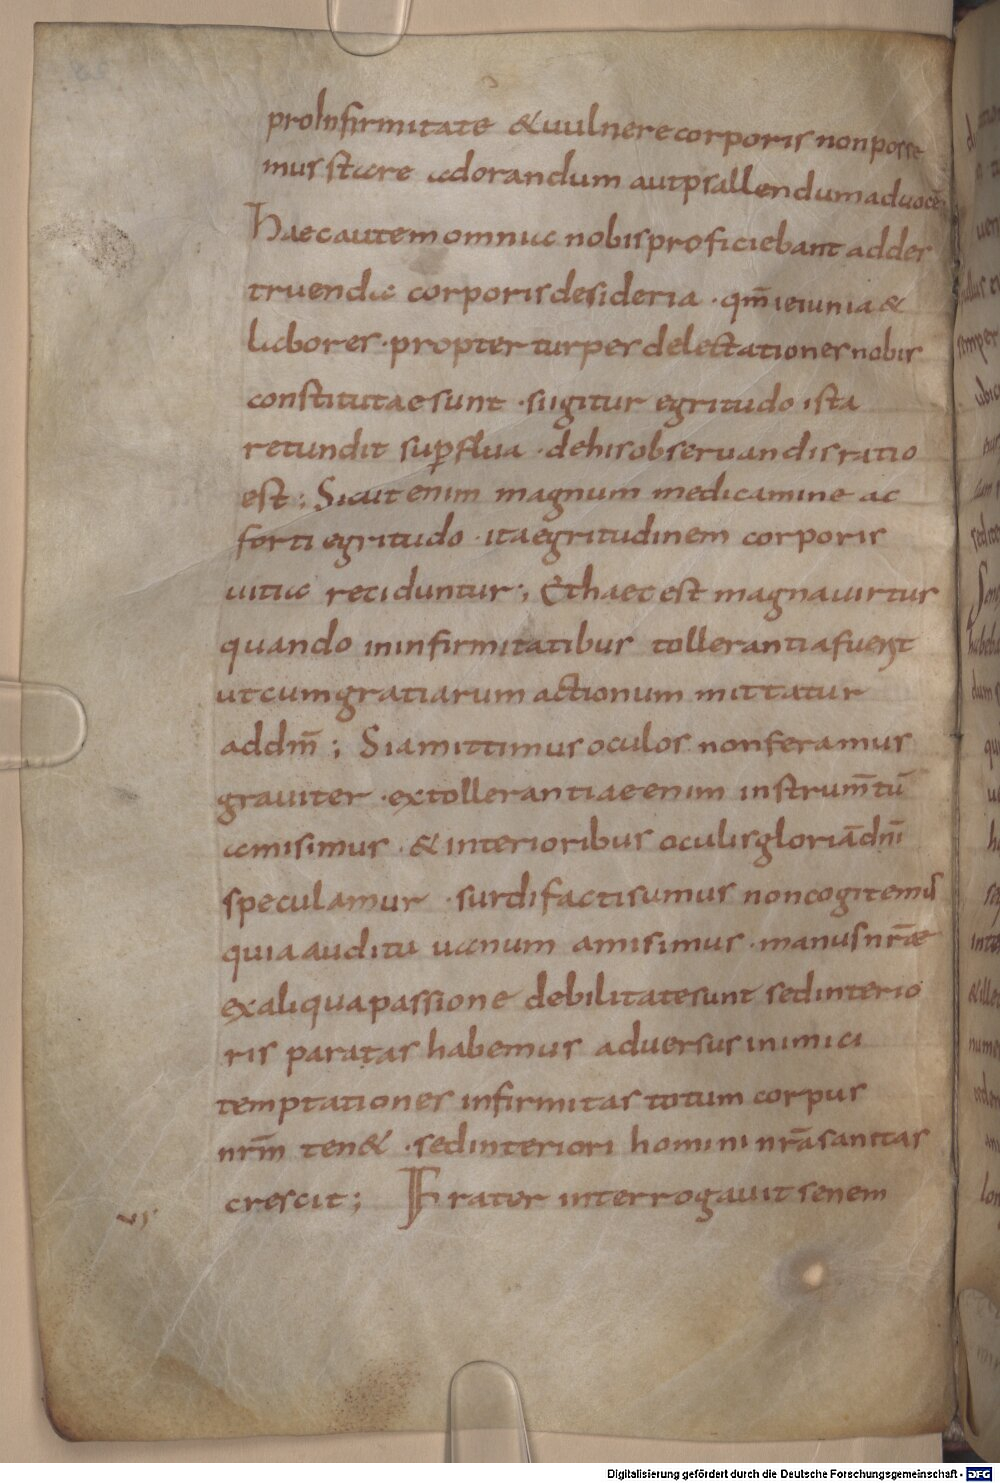 pro infirmitate & uulnere corporis non posse
mus stare adorandum aut psallendum ad uocē
Haec autem omnia nobis proficiebant ad des
truenda corporis desideria · qm̄ ieiunia &
labores · propter turpes delectationes nobis
constitutae sunt · si igitur egritudo ista
retundit sup̱flua · de his obseruandis ratio
est ; Sicut enim magnum medicamine ac
forti egritudo · ita egritudinem corporis
uitia reciduntur ; Et haec est magna uirtus
quando in infirmitatibus tollerantia fuerit
ut cum gratiarum actionum mittatur
ad dm̄ ; Si amittimus oculos non feramus
grauiter · extollerantiae enim instrum̄tū
amisimus · & interioribus oculis gloriā dn̄i
speculamur · surdi facti sumus non cogitemus
quia auditu uanum amisimus · manus nr̄ae
ex aliqua passione debilitate sunt sed interio
ris paratas habemus aduersus inimici
temptationes infirmitas totum corpus
nrm̄ ten& · sed interiori homini nr̄a sanitas
crescit ; Frater interrogauit senem
vi
Digitalisierung gefördert durch die Deutsche Forschungsgemeinschaft - DFG